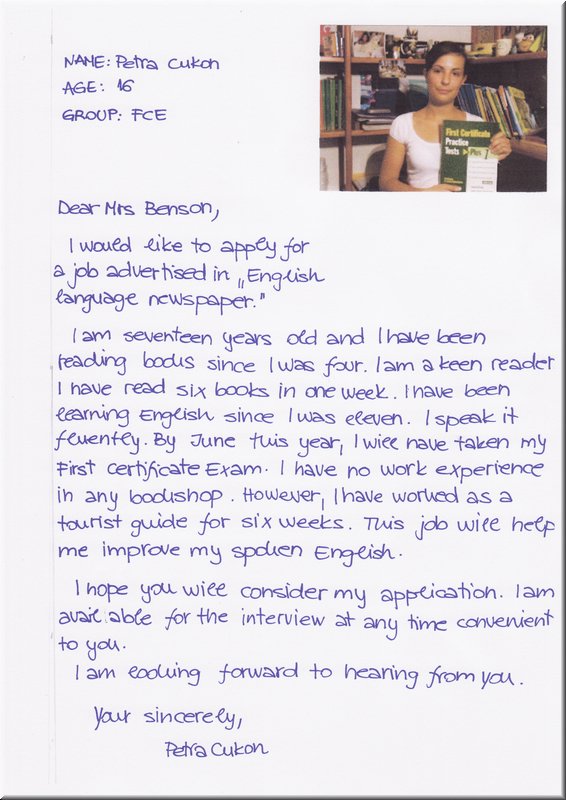 NAME: Petra Cukon
AGE: 16
GROUP: FCE
First Certificate
Practice
Tests Plus 1
Dear Mrs Benson,
I would like to apply for
a job advertised in „English
language newspaper."
I am seventeen years old and I have been
reading books since I was four. I am a keen reader
I have read six books in one week. I have been
learning English since I was eleven. I speak it
fluently. By June this year, I will have taken my
First Certificate Exam. I have no work experience
in any bookshop. However, I have worked as a
tourist guide for six weeks. This job will help
me improve my spoken English.
I hope you will consider my application. I am
available for the interview at any time convenient
to you.
I am looking forward to hearing from you.
Your sincerely,
Petra Cukon